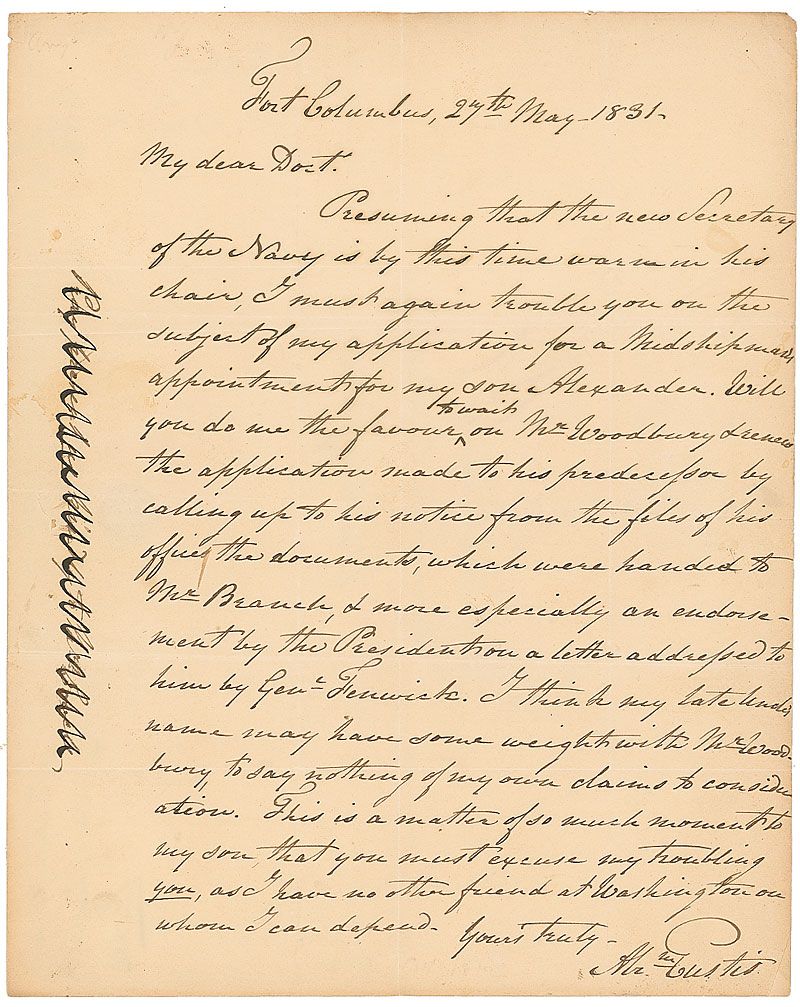 Fort Columbus, 27th May 1831-
My dear Doct.
Presuming that the new Secretary
of the Navy is by this time warm in his
chair, I must again trouble you on the
subject of my application for a Midshipman's
appointment for my son Alexander. Will
to wait
you do me the favour, on Mr Woodbury & renew
the application made to his predecessor by
calling up to his notice from the files of his
office, the documents, which were handed to
Mr Branch, & more especially an endorse-
ment by the President on a letter addressed to
him by Genl Fenwick. I think my late Uncles
name may have some weight with Mr Wood-
bury, to say nothing of my own claims to consider
ation. This is a matter of so much moment to
my son, that you must excuse my troubling
you, as I have no other friend at Washington on
whom I can depend- Yours truly-
Abrm Eustis